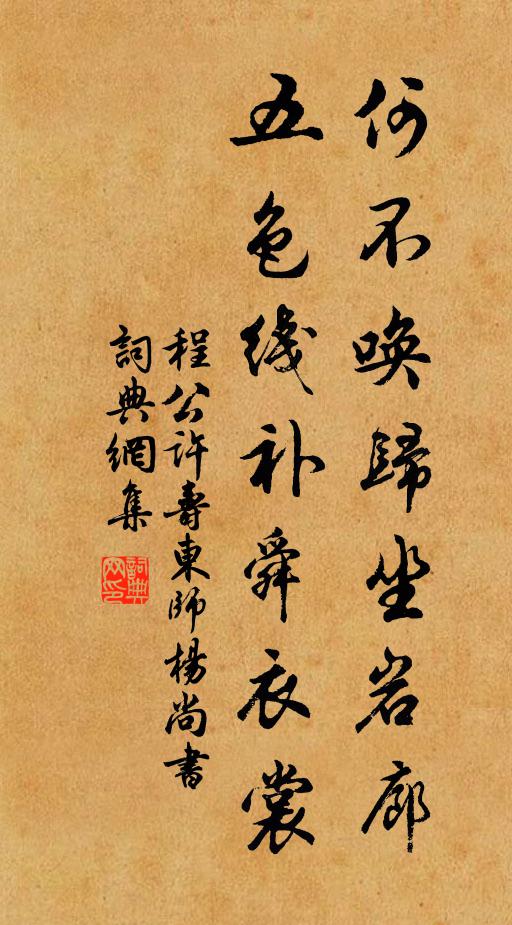 何不唤歸坐岩廊
五色线补舜衣裳
程公許壽東師楊尚書
詞典網集
詞典网印